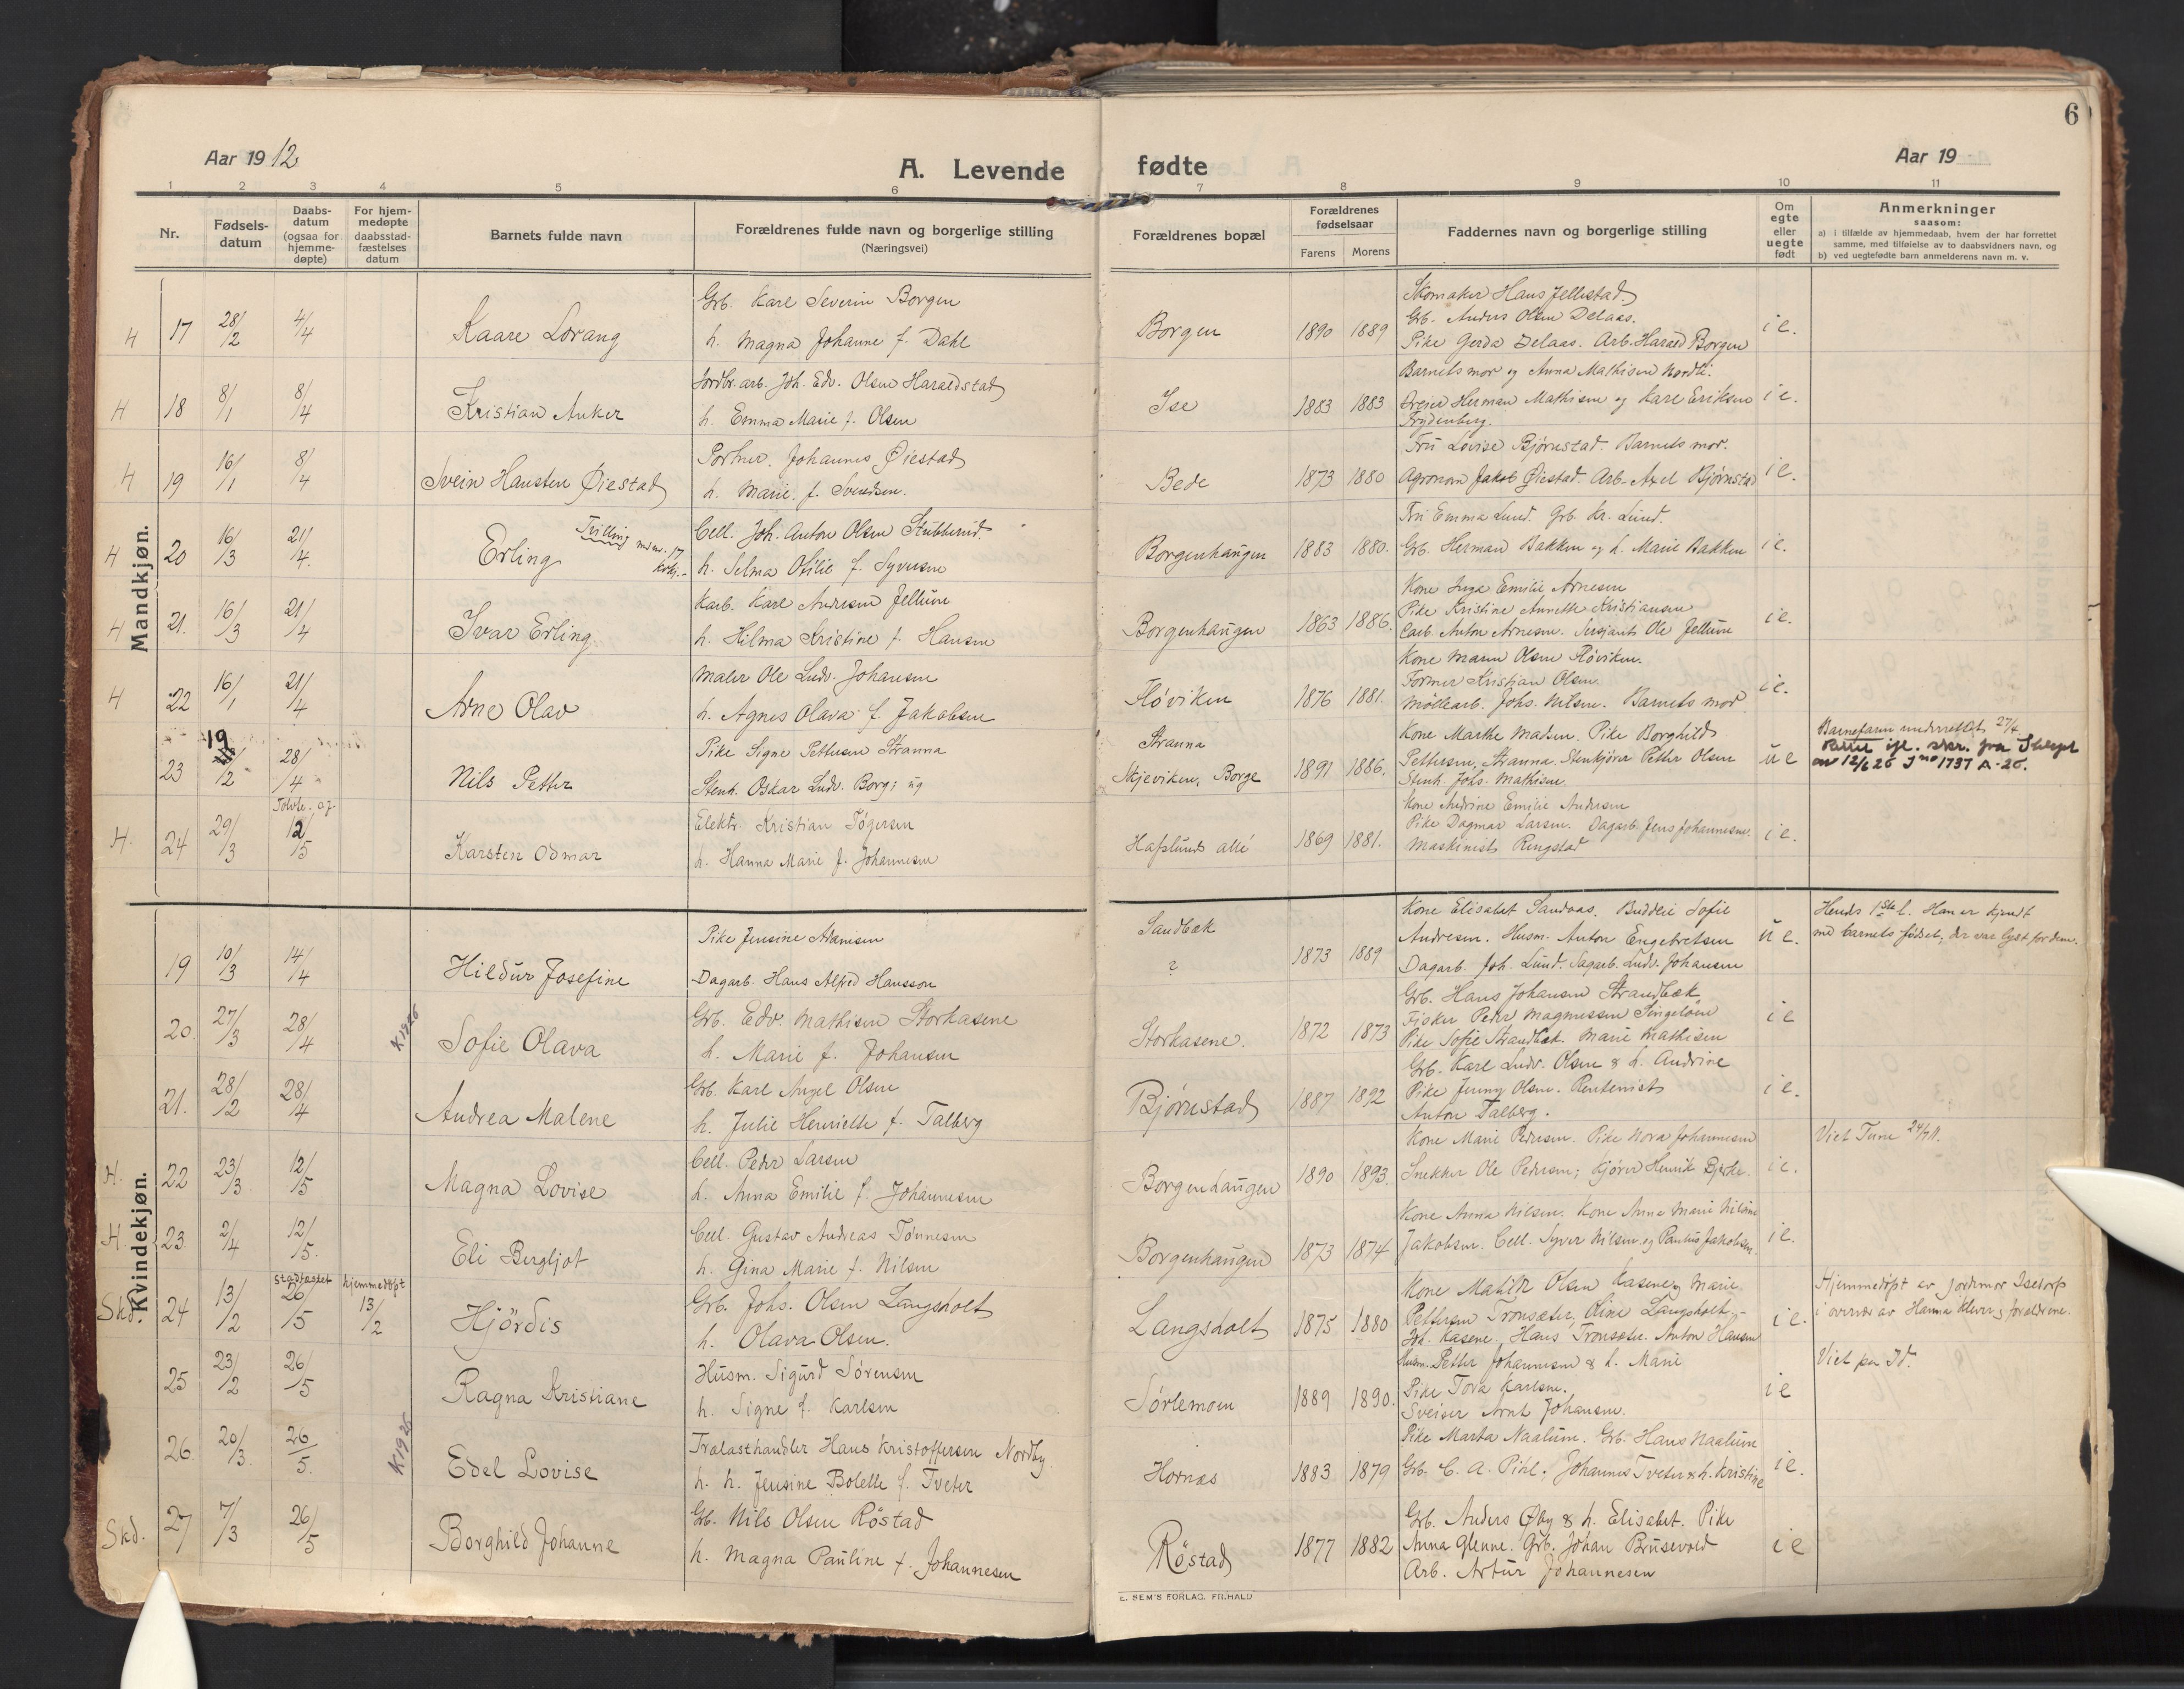 6
Aar 1912
A. Levende
fødte
Aar 19
1 2 3 4 5 6 7 8 9 10 11
Nr.
Fødsels-
datum
Daabs-
datum
(ogsaa for
hjemme-
døpte)
For hjem-
medøpte
daabsstad-
fæstelses
datum
Barnets fulde navn
Forældrenes fulde navn og borgerlige stilling
(Næringsvei)
Forældrenes bopæl
Forældrenes
fødselsaar
Farens Morens
Faddernes navn og borgerlige stilling
Om
egte
eller
uegte
født
Anmerkninger
saasom:
a) i tilfælde av hjemmedaab, hvem der har forrettet
samme, med tilføielse av to daabsvidners navn, og
b) ved uegtefødte barn anmelderens navn m. v.
Mandkjøn.
H 17 28/2 4/4 Kaare Lorang
Grb. Karl Severin Borgen
h. Magna Johanne f. Dahl
Borgen 1890 1889
Skomaker Hans Jellestad
Grb. Anders Olsen Delaas.
Pike Gerda Delaas. Arb. Harald Borgen
i e.
H 18 8/1 8/4 Kristian Anker
Jordbr.arb. Joh. Edv. Olsen Haraldstad
h. Emma Marie f. Olsen
Ise 1883 1883
Barnets mor og Anna Mathisen Nordli.
Dreier Herman Mathisen og Karl Eriksen
Frydenberg.
i e.
H 19 16/1 8/4 Svein Hansten Øiestad
Portner. Johannes Øiestad
h. Marie f. Svendsen.
Bede 1873 1880
Fru Lovise Bjørnestad. Barnets mor.
Agronom Jakob Øiestad. Arb. Axel Bjørnstad
i e.
H 20 16/3 21/4. Erling Trilling med nr. 17
Cell. Joh. Anton Olsen Stubberud
h. Selma Otilie f. Syversen
Borgenhaugen 1883 1880.
Fru Emma Lund. Grb. Kr. Lund.
Grb. Herman Bakken og h. Marie Bakken
i e.
H 21. 16/3 21/4 Ivar Erling
Karb. Karl Andersen Jellum
h. Hilma Kristine f. Hansen
Borgenhaugen 1863 1886.
Kone Inga Emilie Arnesen
Pike Kristine Annette Kristiansen
Carb. Anton Arnesen. Sersjant Ole Jellum
i e.
H 22 16/1 21/4 Arne Olav
Maler Ole Ludv. Johansen
h. Agnes Olava f. Jakobsen
Fløviken 1876 1881.
Kone Maren Olsen Fløviken.
Former Kristian Olsen
Møllearb. Johs. Nilsen. Barnets mor
i e.
23 19/2 28/4 Nils Petter
Pike Signe Pettersen Stranna
Stenh. Oskar Ludv. Borg; ug
Stranna
Skjeviken, Borge 1891 1886.
Kone Marthe Madsen. Pike Borghild
Pettersen, Stranna. Stenkjører Petter Olsen
Stenh. Johs. Mathisen.
u e
Barnefaren underrettet 27/4
av 12/6 26 Jno 1737 A-26.
H. 24 29/3 12/5 Karsten Odmar
Elektr. Kristian Tögersen
h. Hanna Marie f. Johannesen
Hafslunds allé 1869 1881.
Kone Andrine Emilie Andersen
Pike Dagmar Larsen. Dagarb. Jens Johannesen.
Maskinist Ringstad
i e.
Kvindekjøn.
19 10/3 14/4 Hildur Josefine
Pike Jensine Adamsen
Dagarb. Hans Alfred Hansson
Sandbæk
? 1873 1889
Kone Elisabet Sandaas. Budeie Sofie
Andresen. Husm. Anton Engebretsen
Dagarb. Joh. Lund. Sagarb. Ludv. Johansen
u e.
Hendes 1ste l. Han er kjendt
med barnets fødsel; der var lyst for dem.
20. 27/3 28/4 K1926 Sofie Olava
Grb. Edv. Mathisen Storkasene
h. Marie f. Johansen
Storkasene. 1872 1873
Grb. Hans Johansen Strandbæk
Fisker Peder Magnussen Singeløen
Pike Sofie Strandbæk. Marie Mathisen
i e
21. 28/2 28/4 Andrea Malene
Grb. Karl Angel Olsen
h. Julie Henriette f. Talberg
Bjørnestad 1887 1892
Grb. Karl Ludv. Olsen & h. Andrine
Pike Jenny Olsen. Rentenist
Anton Talberg.
i e.
H. 22 23/3 12/5 Magna Lovise
Cell. Peder Larsen
h. Anna Emilie f. Johannesen
Borgenhaugen 1890 1893.
Kone Marie Pedersen. Pike Nora Johannesen
Snekker Ole Pedersen; Kjører Henrik Bjerke.
i e.
Viet Tune 24/9 11.
H. 23. 2/4 12/5. Eli Bergljot
Cell. Gustav Andreas Tønnesen
h. Gina Marie f. Nilsen
Borgenhaugen 1873 1874
Kone Anna Nilsen. Kone Anne Marie Nilsine
Jakobsen. Cell. Syver Nilsen og Paulus Jakobsen.
i e.
Skd. 24 13/2 stadfæstet 26/5 hjemmedøpt 13/2 Hjördis
Grb. Johs. Olsen Langsholt
h. Olava Olsen.
Langsholt 1875 1880
Kone Matilde Olsen Kasene, Marie
Pettersen Tronsæter, Oline Langsholt,-
Joh. Kasene. Hans Tronsæter. Anton Hansen
i e.
Hjemmedøpt av jordmor Isetorp
i overvær av Hanna Klever & forældrene.
25 23/2 26/5 Ragna Kristiane
Husm. Sigurd Sörensen
h. Signe f. Karlsen
Sørlemoen 1889 1890.
Husm. Petter Johannesen & h. Marie
Pike Tora Karlsen.
Sveiser Arnt Johansen.
i e
Viet paa Id.
26. 20/3. 26/5. K1926 Edel Lovise
Trælasthandler Hans Kristoffersen Nordby
h. h. Jensine Bolette f. Tveter
Hornæs 1883 1879
Pike Marta Naalum. Grb. Hans Naalum
Grb. C. A. Pihl. Johannes Tveter & h. Kristine
i e.
Skd. 27 7/3 26/5 Borghild Johanne
Grb. Nils Olsen Röstad
h. Magna Pauline f. Johannesen
Röstad 1877 1882
Grb. Anders Øby & h. Elisabet. Pike
Anna Glenne. Grb. Johan Brusevold
Arb. Artur Johannesen
i e
E. SEM'S FORLAG. FR.HALD